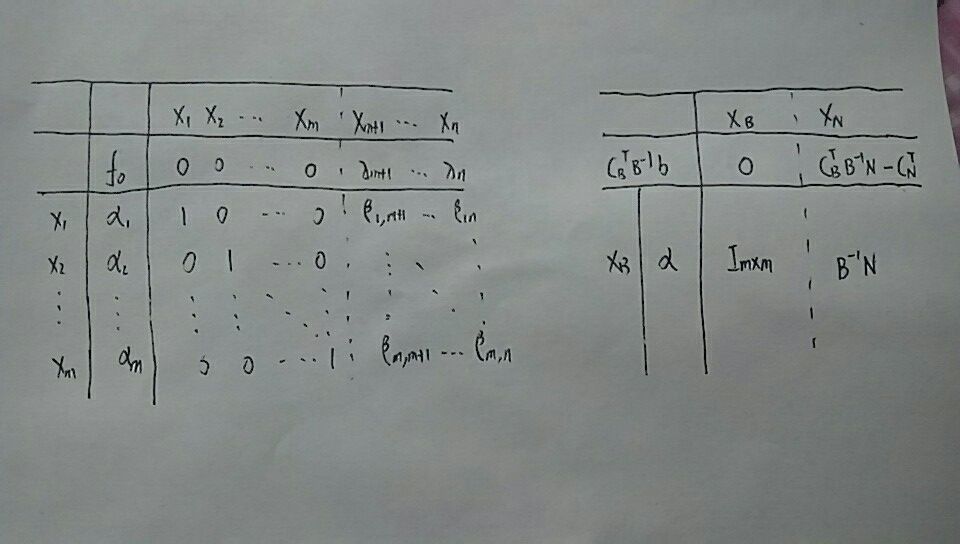 X₁ X₂ ... Xₘ Xₘ₊₁ ... Xₙ
f₀ 0 0 ... 0 λₘ₊₁ ... λₙ
X₁ α₁ 1 0 ... 0 β₁,ₘ₊₁ ... β₁ₙ
X₂ α₂ 0 1 ... 0
Xₘ αₘ 0 0 ... 1 βₘ,ₘ₊₁ ... βₘ,ₙ
X_B X_N
C_B^T B⁻¹b 0 C_B^T B⁻¹N - C_N^T
X_B α Iₘₓₘ B⁻¹N